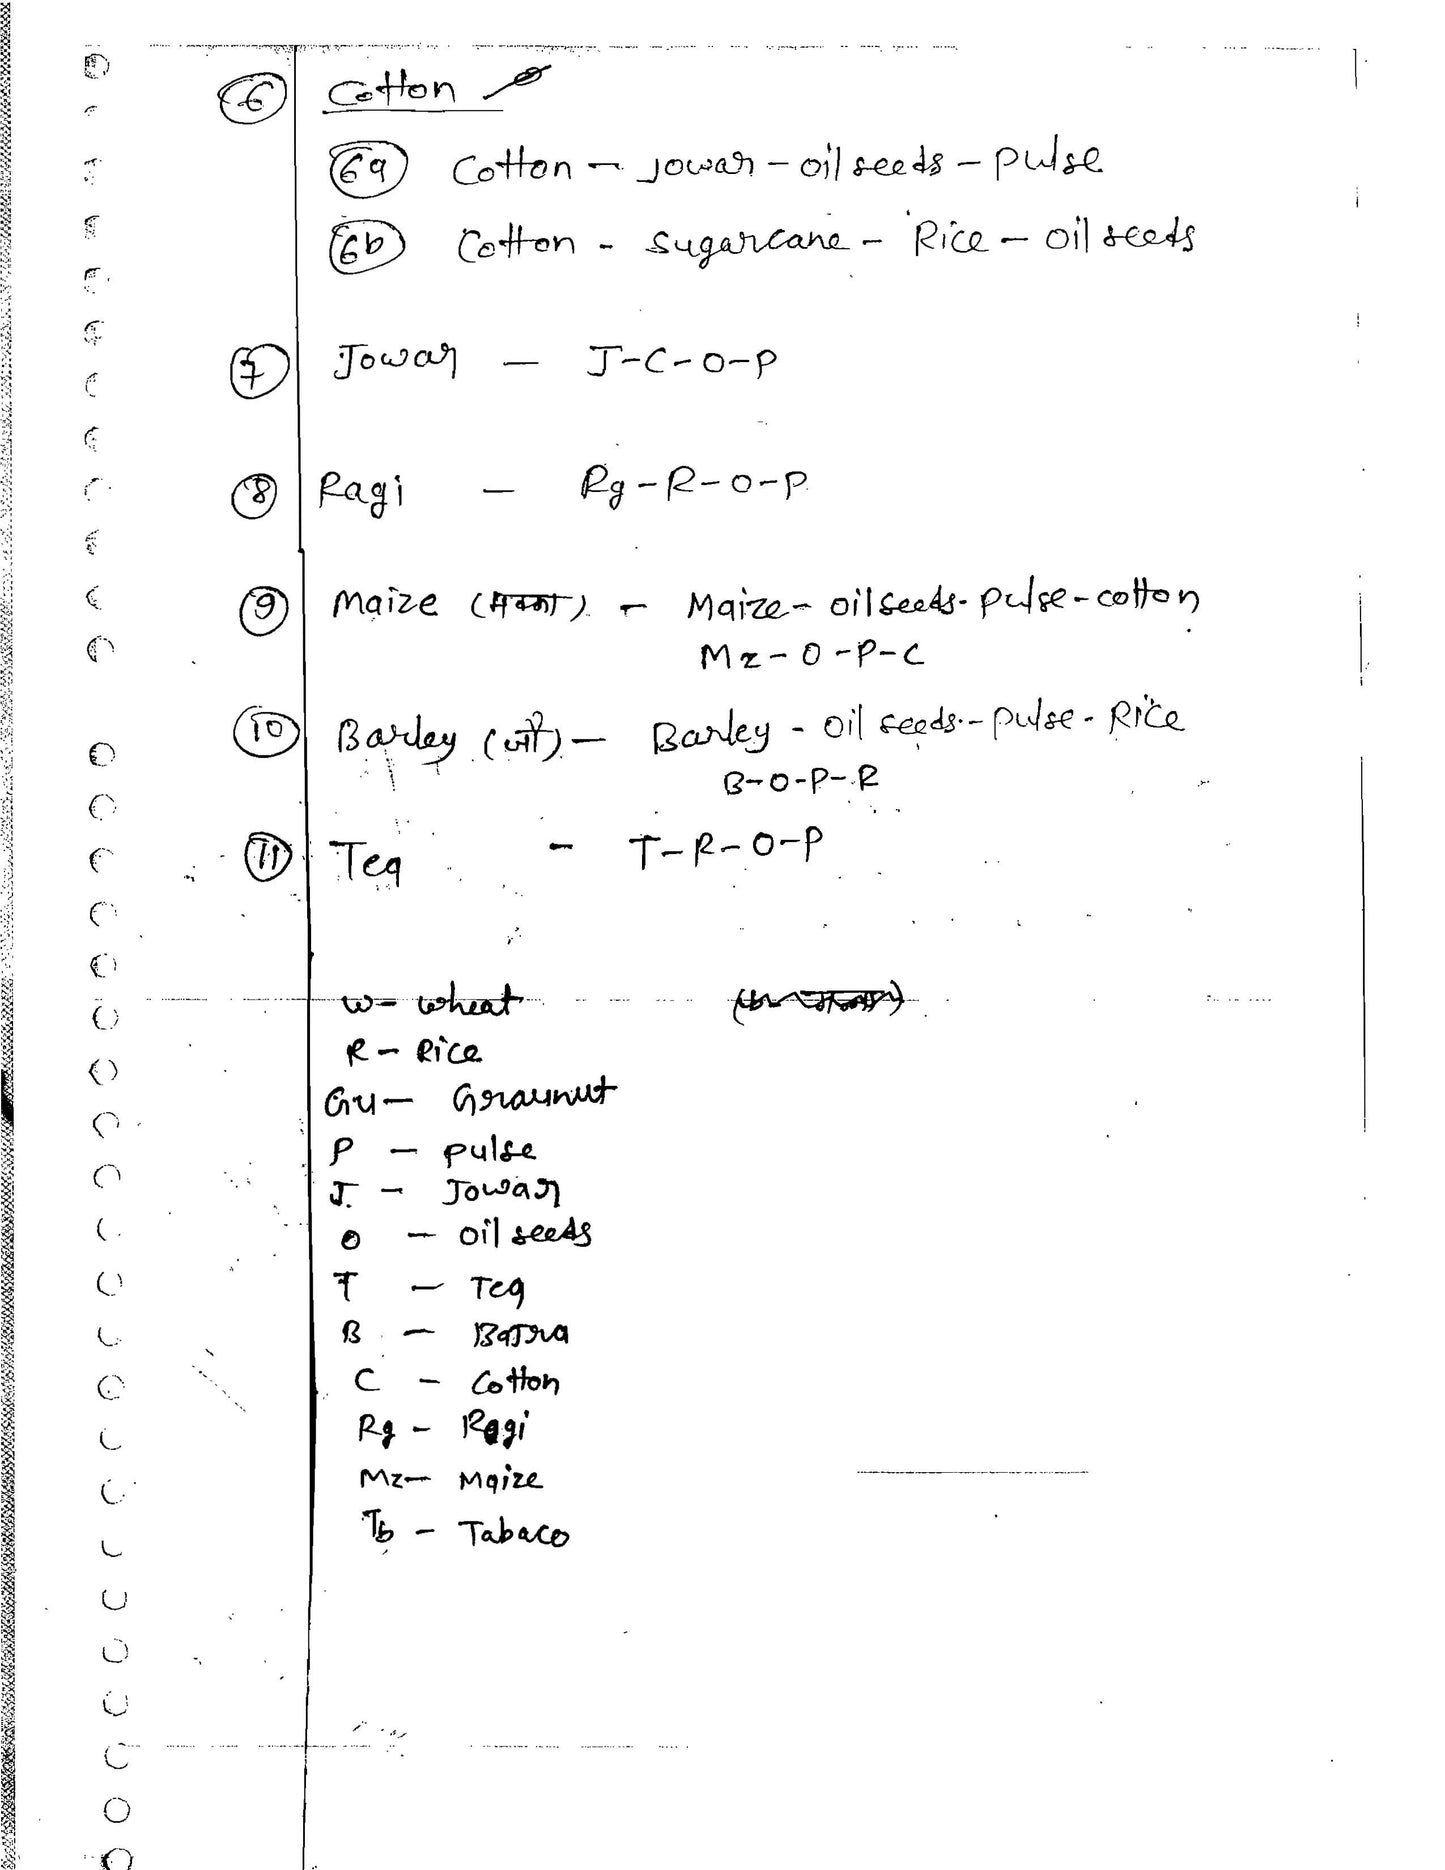 6 Cotton
6a Cotton - Jowar - oil seeds - pulse
6b Cotton - Sugarcane - Rice - oil seeds
7 Jowar - J-C-O-P
8 Ragi - Rg-R-O-P
9 Maize (मक्का) - Maize - oil seeds - pulse - cotton
Mz-O-P-C
10 Barley (जौ) - Barley - oil seeds - pulse - Rice
B-O-P-R
11 Tea - T-R-O-P
W - wheat
R - Rice
Gu - Graunut
P - pulse
J. - Jowar
O - oil seeds
T - Tea
B - Bajra
C - Cotton
Rg - Ragi
Mz - Maize
Tb - Tabaco